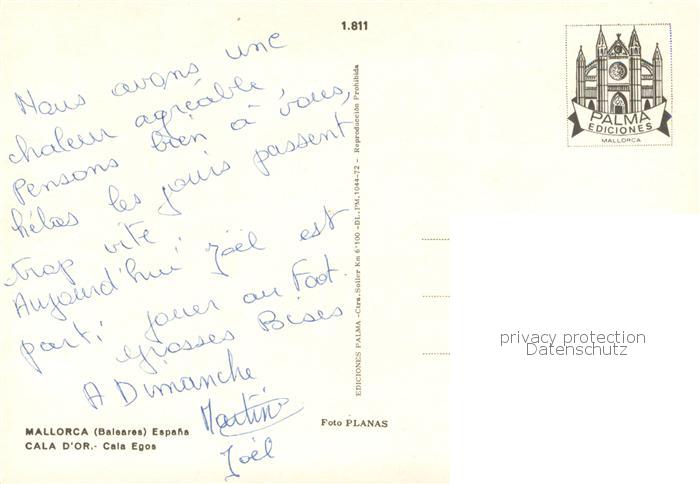 1.811
Nous avons une
chaleur agréable
Pensons bien à vous,
hélas les jours passent
trop vite.
Aujourd'hui Joël est
parti jouer au Foot.
Grosses Bises
A Dimanche
Martine
Joël
MALLORCA (Baleares) España
CALA D'OR.- Cala Egos
Foto PLANAS
EDICIONES PALMA -Ctra. Soller Km 6'100 -DL. PM. 1044-72 - Reproducción Prohibida
PALMA
EDICIONES
MALLORCA
privacy protection
Datenschutz